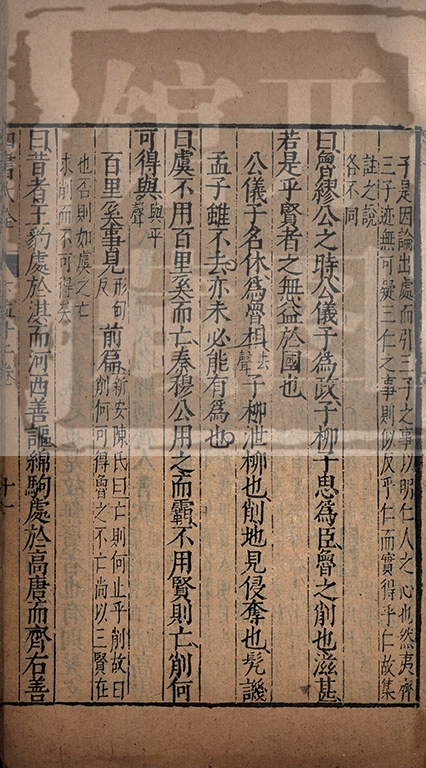 于是因論出處而引三子之事以明仁人之心也然夷齊
三子迹無可疑三仁之事則似反乎仁而實得乎仁故集
註之說
各不同
曰魯繆公之時公儀子為政子柳子思為臣魯之削也滋甚
若是乎賢者之無益於國也
公儀子名休為魯相去聲子柳泄柳也削地見侵奪也髠譏
孟子雖不去亦未必能有為也
曰虞不用百里奚而亡秦穆公用之而霸不用賢則亡削何
可得與與平聲
百里奚事見形甸反前篇新安陳氏曰亡則何止乎削故曰
削何可得魯之不亡尚以三賢在
也否則如虞之亡
求削而不可得矣
曰昔者王豹處於淇而河西善謳綿駒處於高唐而齊右善